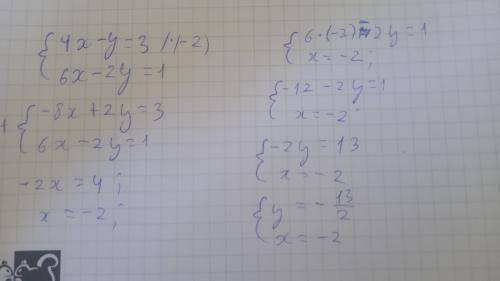 4x-y=3 /·(-2)
6x-2y=1
+
-8x+2y=3
6x-2y=1
-2x=4;
x=-2;
6·(-2)-2y=1
x=-2;
-12-2y=1
x=-2
-2y=13
x=-2
y=-13/2
x=-2